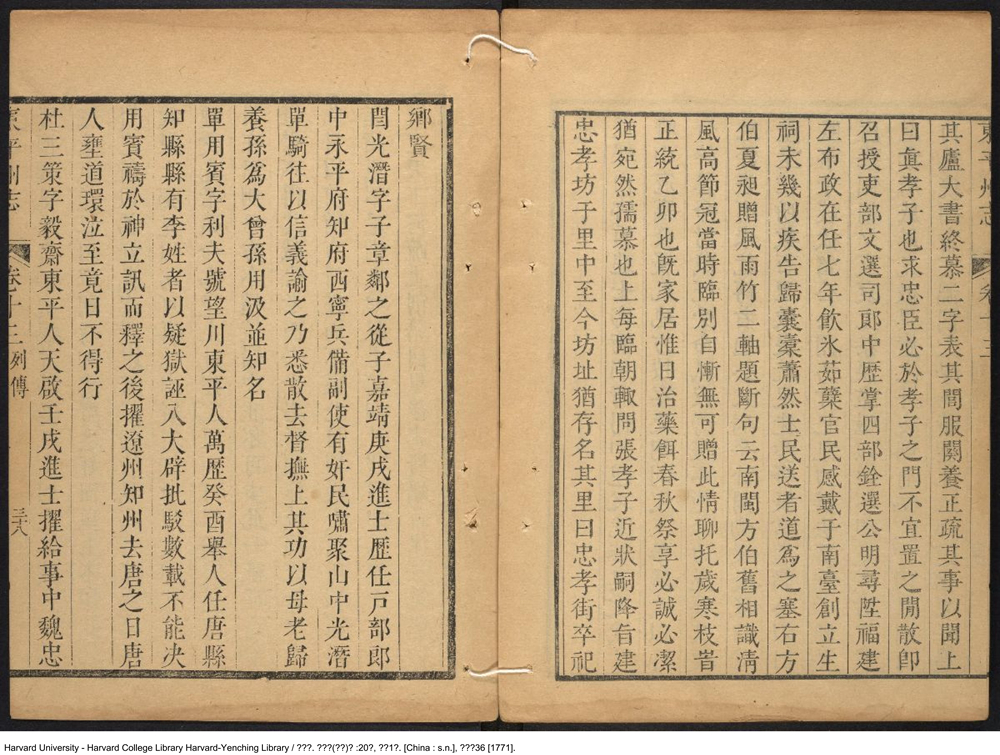 東平州志 卷十三
其廬大書終慕二字表其閭服闋養正疏其事以聞上
曰眞孝子也求忠臣必於孝子之門不宜置之閒散卽
召授吏部文選司郎中歴掌四部銓選公明尋陞福建
左布政在任七年飲氷茹蘗官民感戴于南臺創立生
祠未幾以疾告歸囊橐蕭然士民送者道爲之塞右方
伯夏昶贈風雨竹二軸題斷句云南閩方伯舊相識淸
風高節冠當時臨別自慚無可贈此情聊托歲寒枝旹
正統乙卯也旣家居惟日治藥餌春秋祭享必誠必潔
猶宛然孺慕也上每臨朝輒問張孝子近狀嗣降旨建
忠孝坊于里中至今坊址猶存名其里曰忠孝街卒祀
鄉賢
閆光潛字子章鄰之從子嘉靖庚戌進士歴任戸部郎
中永平府知府西寧兵備副使有奸民嘯聚山中光潛
單騎往以信義諭之乃悉散去督撫上其功以母老歸
養孫爲大曾孫用汲並知名
單用賓字利夫號望川東平人萬歴癸酉舉人任唐縣
知縣縣有李姓者以疑獄誣入大辟批駁數載不能决
用賓禱於神立訊而釋之後擢遼州知州去唐之日唐
人壅道環泣至竟日不得行
杜三策字毅齋東平人天啟壬戌進士擢給事中魏忠
東平州志 卷十三 列傳 三八
Harvard University - Harvard College Library Harvard-Yenching Library / ???. ???(??)? :20?, ??1?. [China : s.n.], ???36 [1771].